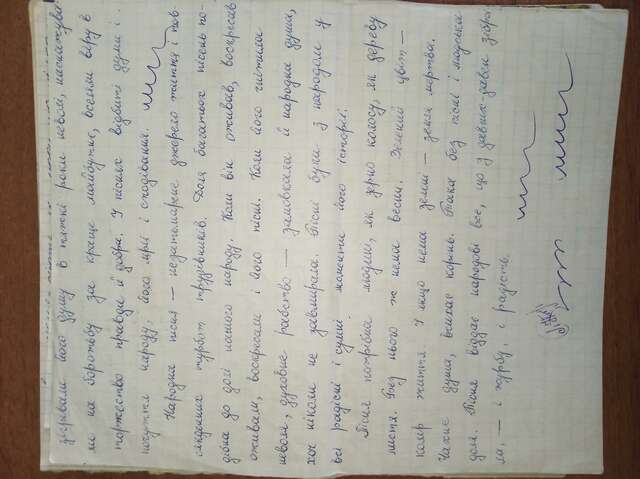 зігрівали його душу в тяжкі роки неволі,
ли на боротьбу за краще майбутнє, вселяли віру в
торжество правди й добра. У піснях відбиті думи і
почуття народу, його мрії і сподівання.
Народна пісня — незатемарене джерело життя і пов-
сякденних турбот трудівників. Доля багатьох пісень по-
дібна до долі нашого народу. Коли він оживав, воскресав
оживали, воскресали і його пісні. Коли його гнітила
неволя, духовне рабство — замовкала й народна душа,
хоч ніколи не завмирала. Пісні були з народом у
всі радісні і сумні моменти його історії.
Пісня потрібна людям, як зерно колосу, як дереву
листя. Без нього ж нема весни. Зелений цвіт —
колір життя. І якщо нема зелені — земля мертва.
Чахне душа, всихає корінь. Така без пісні і людська
доля. Пісня віддає народові все, що з давніх-давен зібра-
ла, — і журбу, і радість.